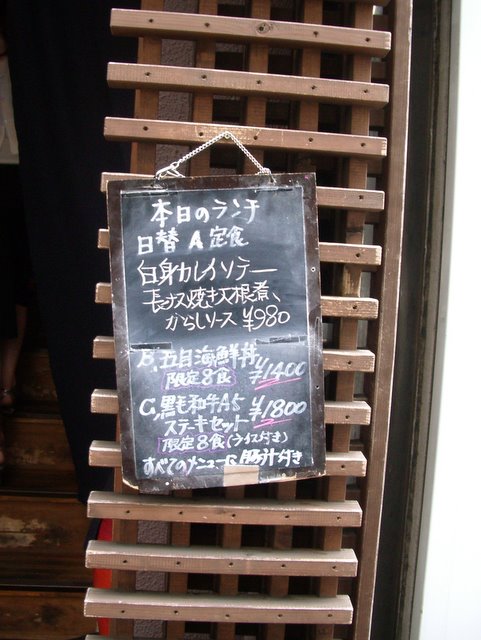 本日のランチ
日替 A 定食
白身カレイソテー
長ナス焼き大根煮、
からしソース ¥980
B. 五目海鮮丼 ¥1400
限定8食
C. 黒毛和牛A5 ¥1800
ステーキセット
限定8食(ライス付き)
すべてのメニューに豚汁付き